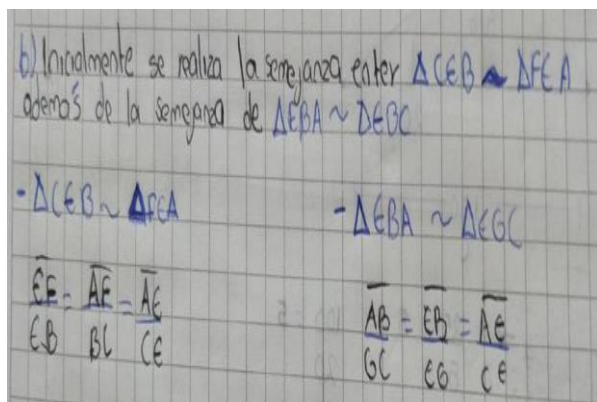 b) Inicialmente se realiza la semejanza enter ΔCEB ~ ΔFEA
además de la semejanza de ΔEBA ~ ΔEGC
- ΔCEB ~ ΔFEA
- ΔEBA ~ ΔEGC
EF/EB = AF/BC = AE/CE
AB/GC = EB/EG = AE/CE